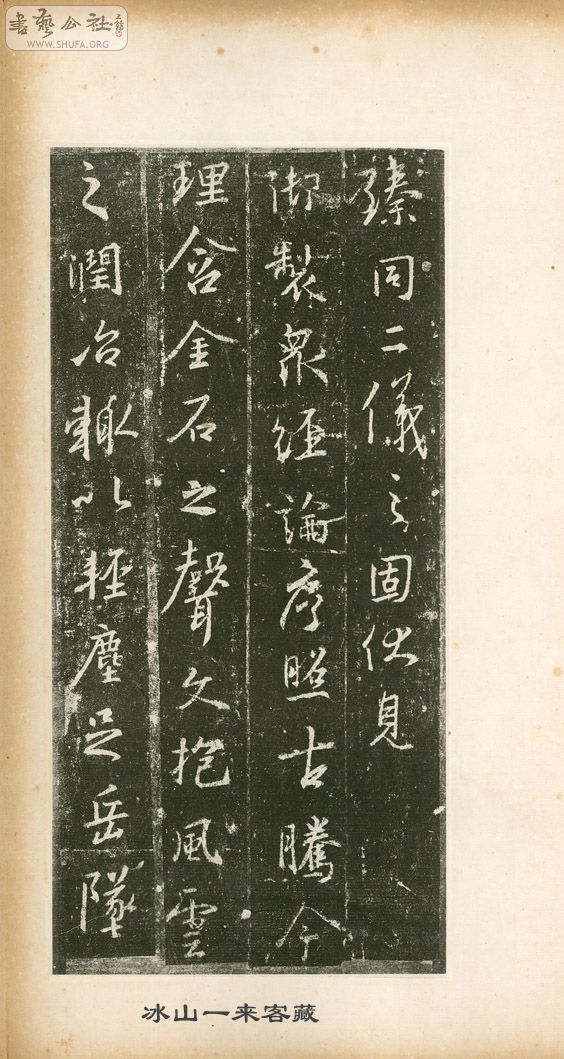 書藝公社
WWW.SHUFA.ORG
臻同二儀之固伏見
御製衆經論序照古騰今
理含金石之聲文抱風雲
之潤治輙以輕塵足岳墜
冰山一来客藏